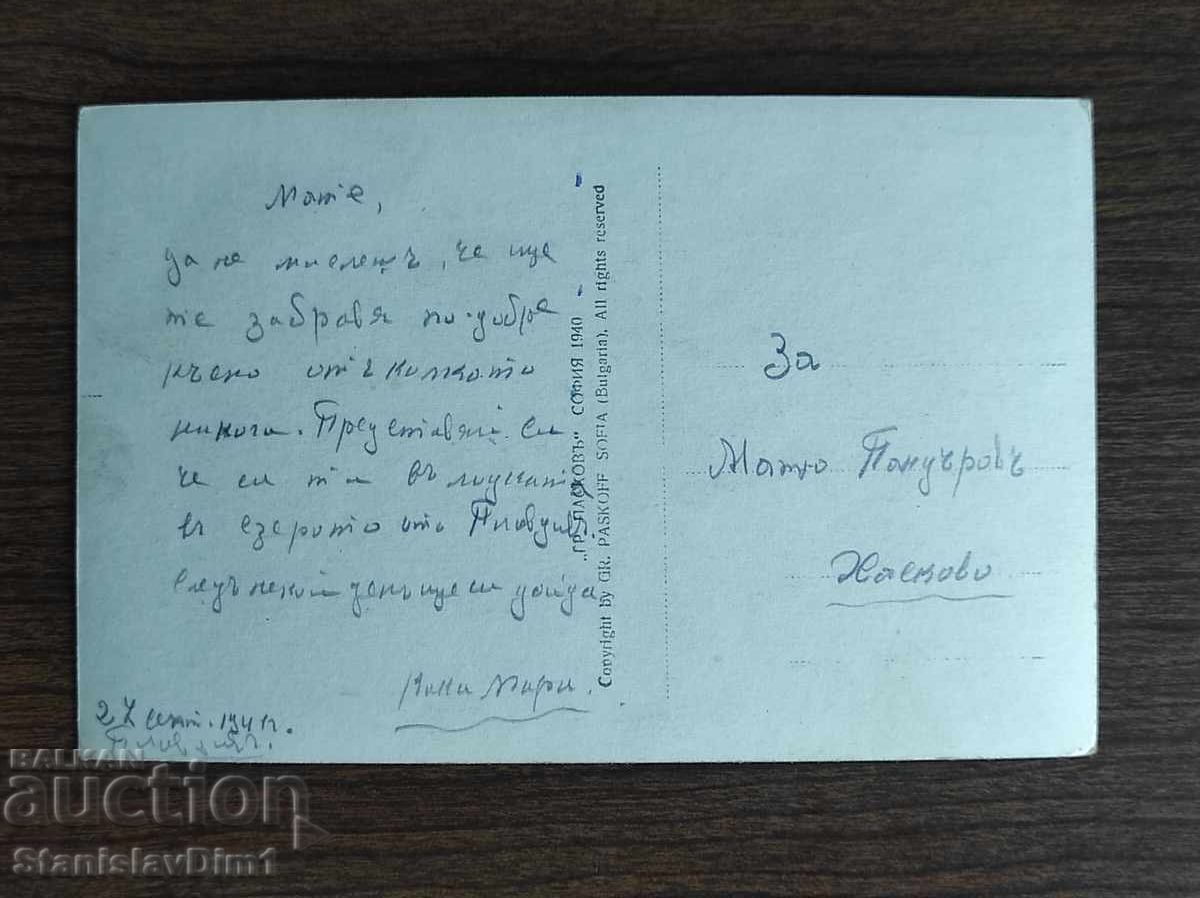 Мате,
да не мислешъ, че ще
те забравя по-добре
късно отъ колкото
никога. Представяй си
че си ти въ лодката
въ езерото отъ Пловдивъ.
Следъ некой день ще си дойда
Кака Мара.
27 септ. 1941 г.
Пловдивъ.
„ГР. ПАСКОВЪ“ СОФИЯ 1940
Copyright by GR. PASKOFF SOFIA (Bulgaria). All rights reserved
За
Матю Панучровъ
Хасково
BALKAN
auction
StanislavDim1